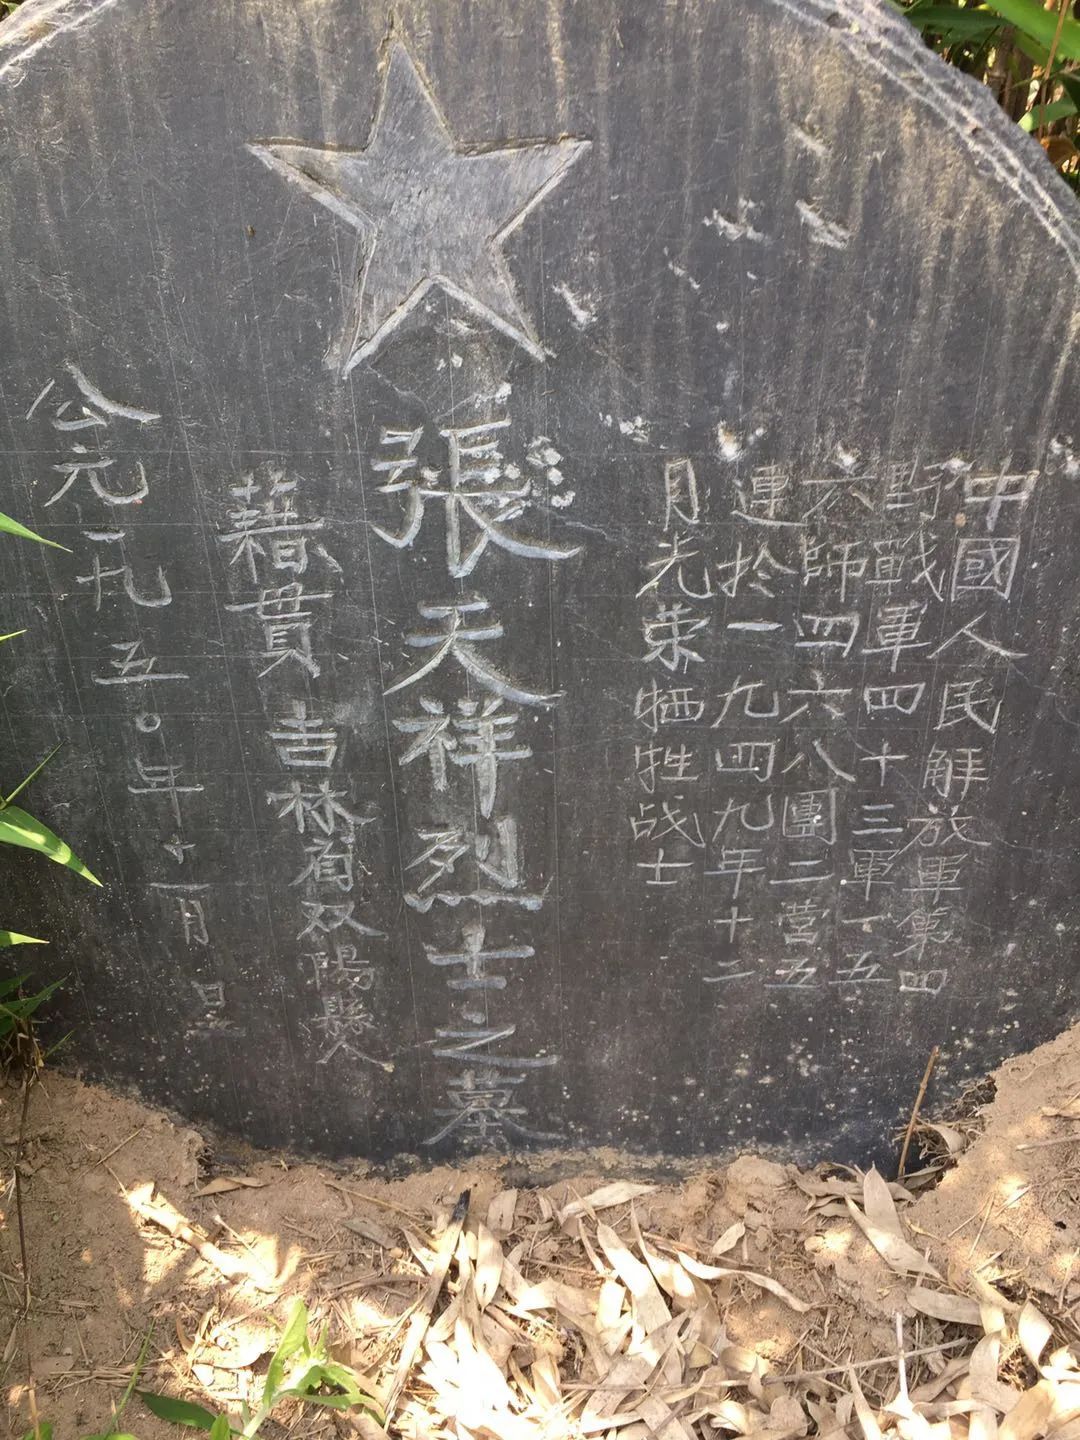 中國人民解放軍第四
野戰軍四十三軍一五
六師四六八團二营五
連扵一九四九年十二
月光荣牺牲战士
張天祥烈士之墓
藉貫吉林省双陽縣人
公元一九五〇年十一月旦